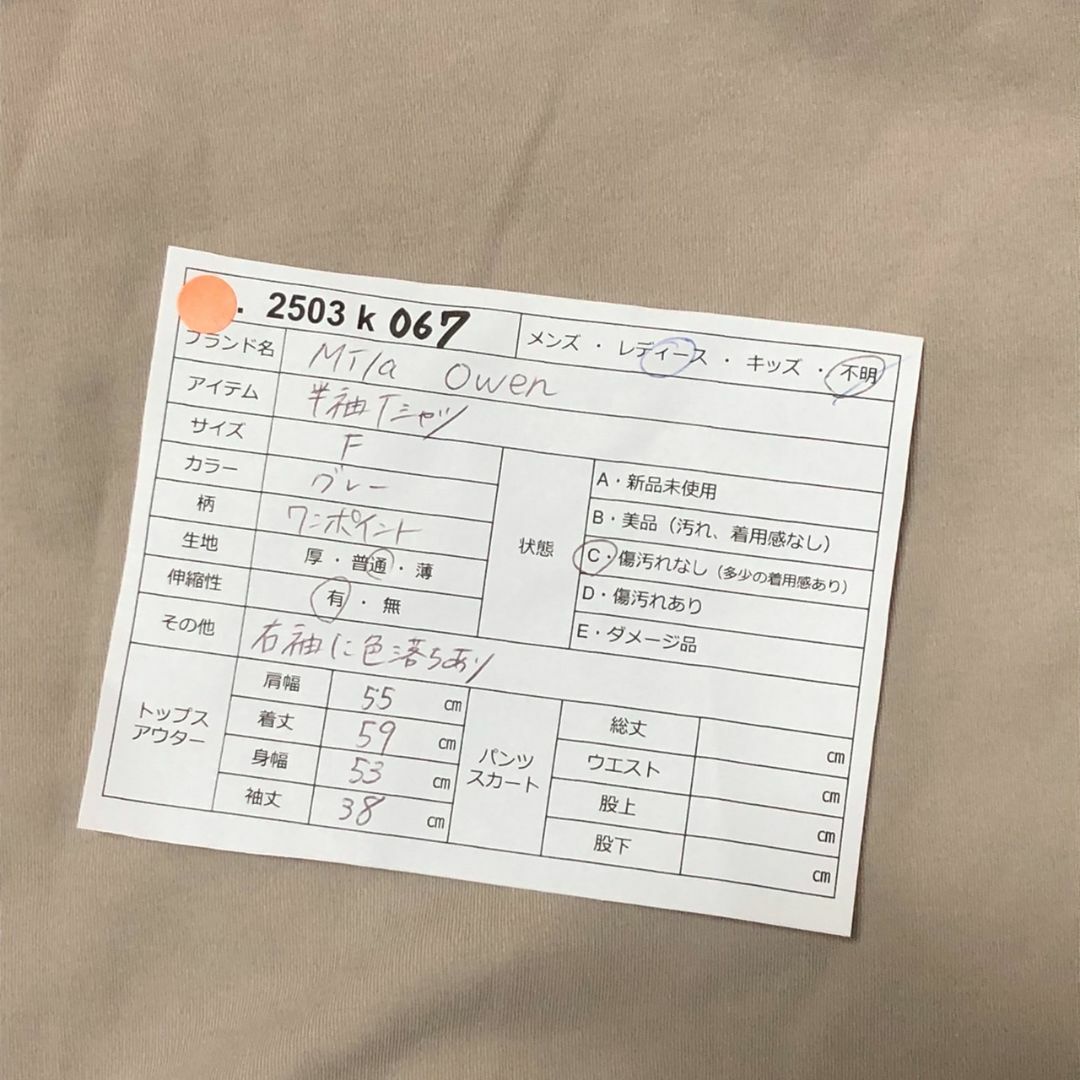 . 2503 k 067
メンズ ・ レディース ・ キッズ ・ 不明
ブランド名 Mila Owen
アイテム 半袖Tシャツ
サイズ F
カラー グレー
柄 ワンポイント
生地 厚・普通・薄
伸縮性 有・無
状態
A・新品未使用
B・美品（汚れ、着用感なし）
C・傷汚れなし（多少の着用感あり）
D・傷汚れあり
E・ダメージ品
その他 右袖に色落ちあり
トップス
アウター
肩幅 55 ㎝
着丈 59 ㎝
身幅 53 ㎝
袖丈 38 ㎝
パンツ
スカート
総丈 ㎝
ウエスト ㎝
股上 ㎝
股下 ㎝